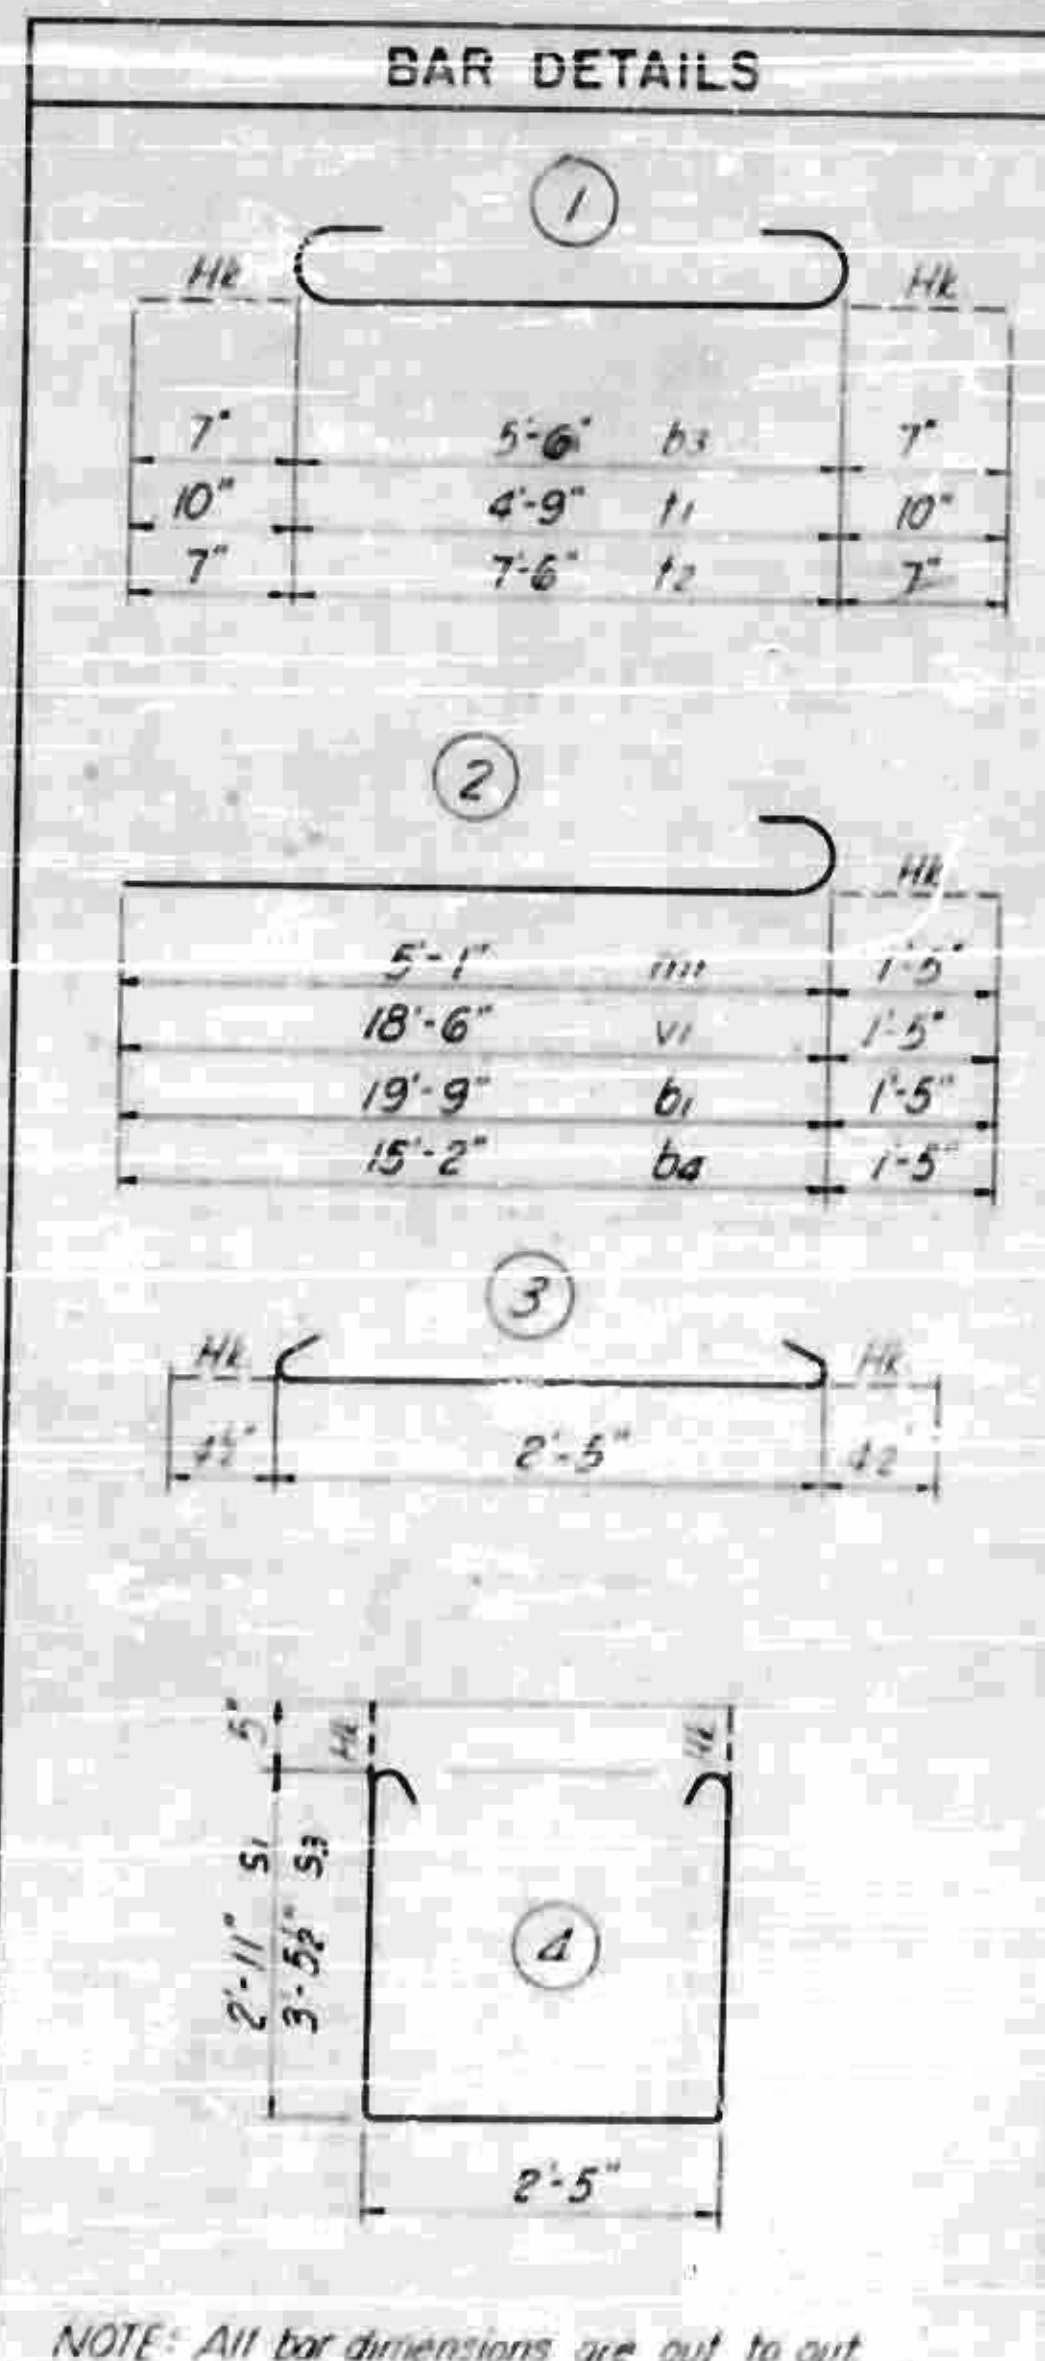 BAR DETAILS
1
Hk Hk
7" 5'-6" b3 7"
10" 4'-9" t1 10"
7" 7'-6" t2 7"
2
Hk
5'-1" m1 1'-5"
18'-6" v1 1'-5"
19'-9" b1 1'-5"
15'-2" b4 1'-5"
3
Hk Hk
4½" 2'-5" 4½"
5" Hk Hk
2'-11" S1
3'-5½" S3
4
2'-5"
NOTE: All bar dimensions are out to out